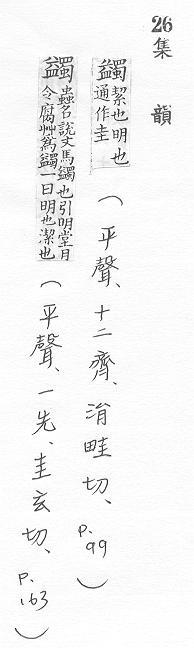 26 集 韻
蠲 絜也明也
通作圭 （平聲、十二齊、涓畦切、p.99）
蠲 蟲名說文馬蠲也引明堂月
令腐艸爲蠲一曰明也潔也 （平聲、一先、圭玄切、p.163）